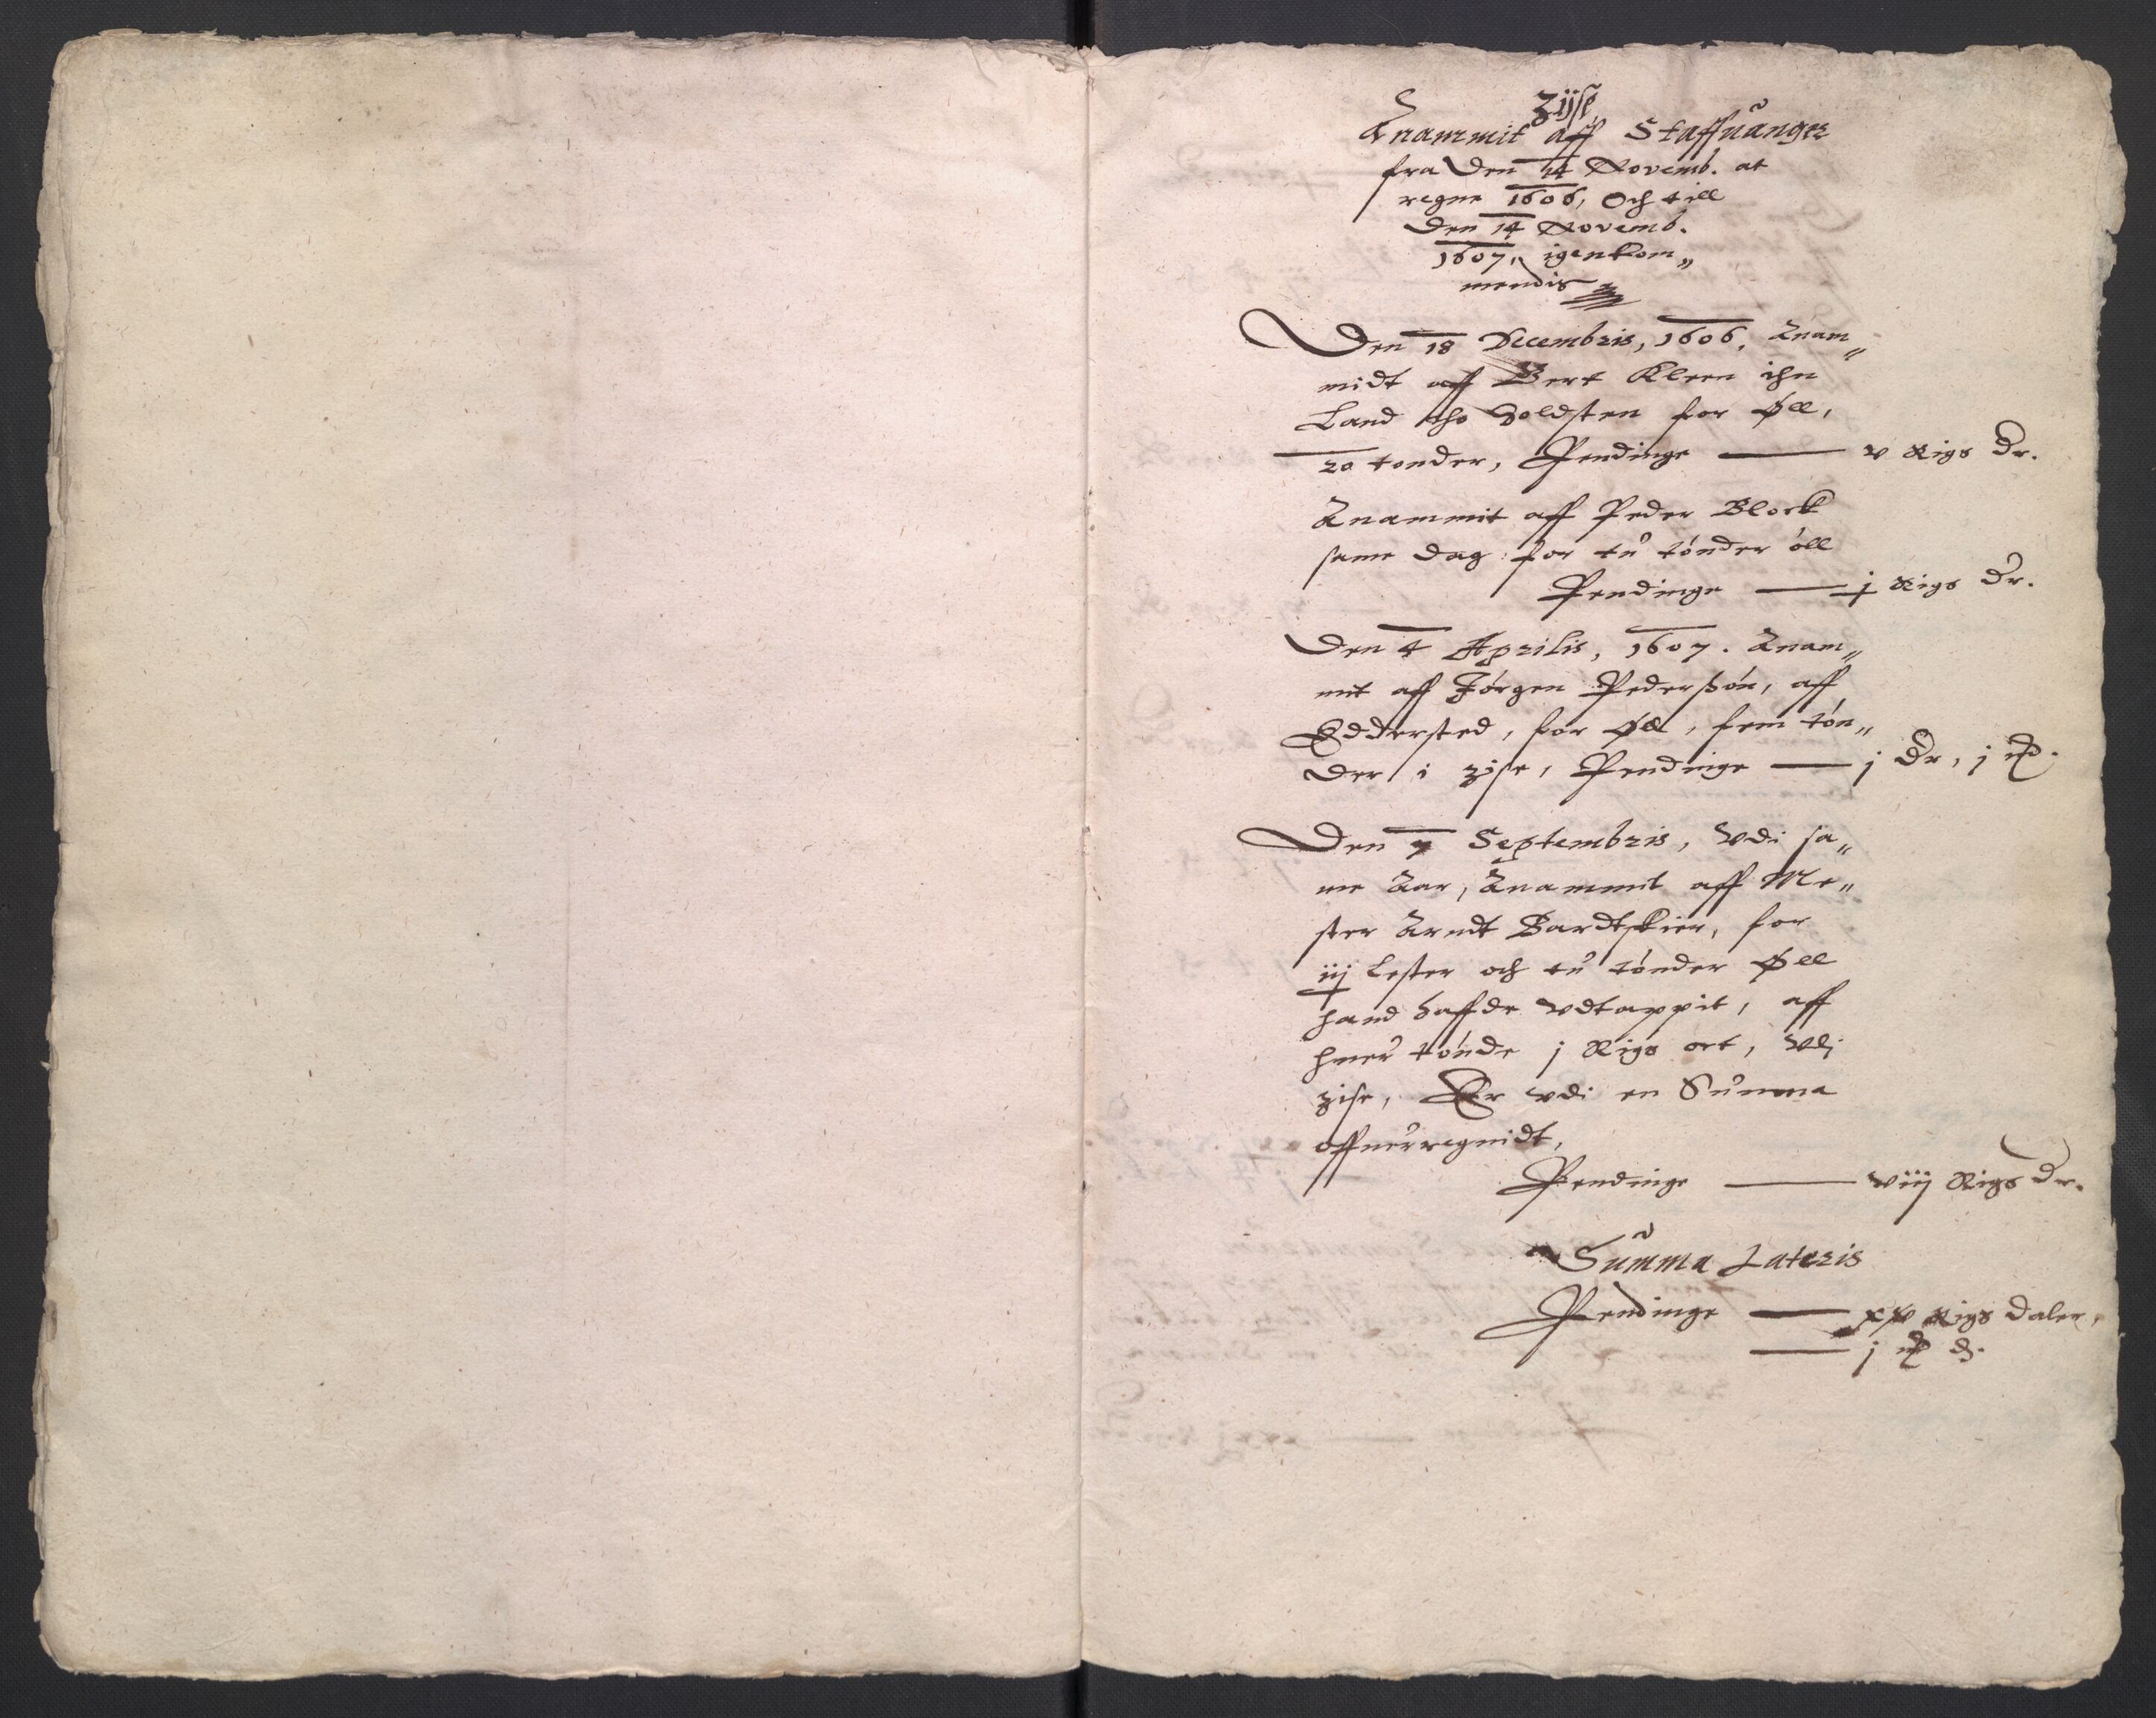 Zijse
Anammit aff Staffuanger
fra den 14 Novemb. at
regne 1606, Och till
den 14 Novemb.
1607,, igenkom„
mendis
Den 18 Decembris, 1606, Anam„
midt aff Bert Kleen ihn
Land tho Holdsten for Øll,
20 tonder, Pendinge — v Rigs Dr.
Anammit aff Peder Block
same dag for tu tónder óll
Pendinge — j Rigs Dr.
Den 4 Aprilis, 1607. Anam„
mit aff Jórgen Pederßón, aff
Eddersted, for Øll, fem tón„
der i zise, Pendinge — j Dr, j
Den 7 Septembris, Vdi sa„
me Aar, Anammit aff Me„
ster Arndt Bardtskier, for
iij Lester och tu tónder Øll
hand haffde vdtappit, aff
huer tónde j Rigs ort, Vdj
zise, Er vdi en Summa
offuerregnidt,
Pendinge — viij Rigs Dr.
Summa Lateris
Pendinge — xv Rigs daler,
— j